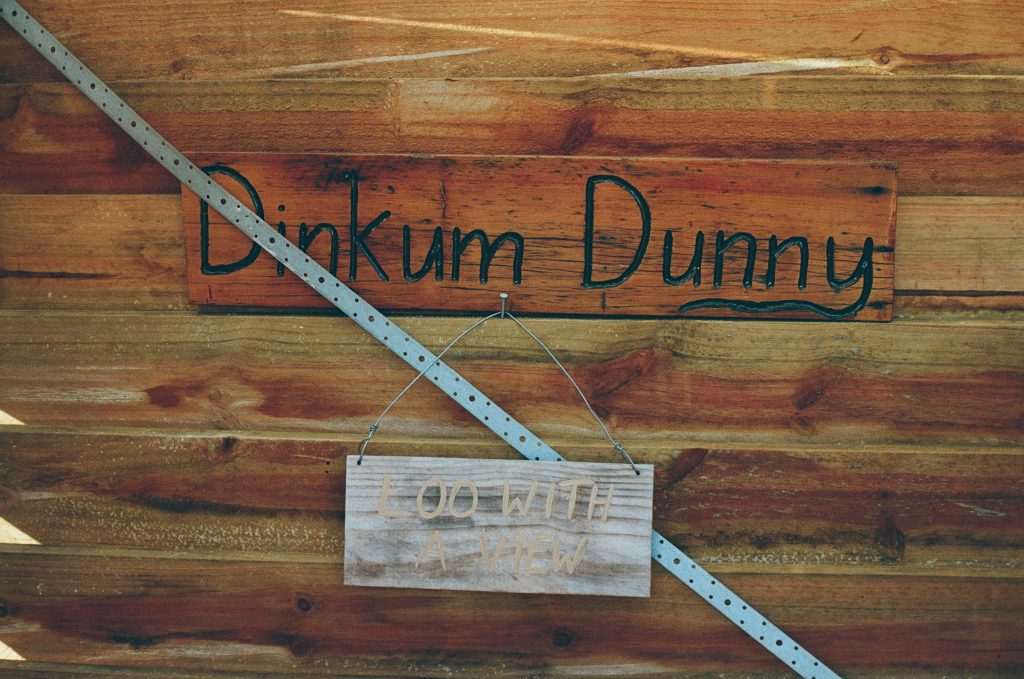 Dinkum Dunny
LOO WITH
A VIEW